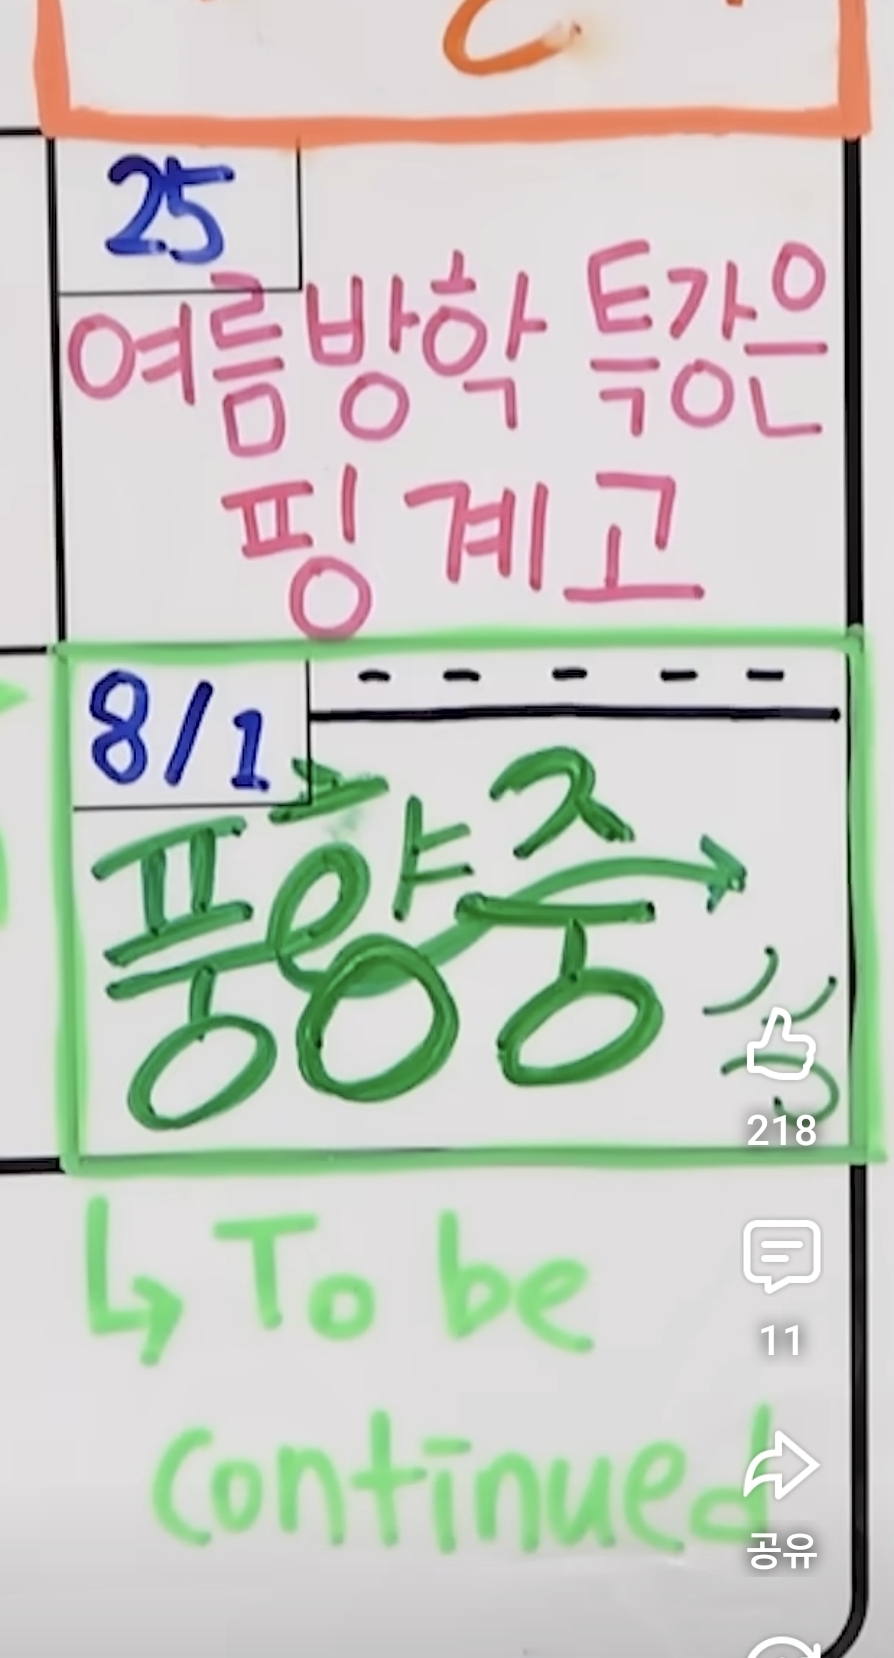 25
여름방학 특강은
핑계고
8/1
풍향중
To be
continued
218
11
공유